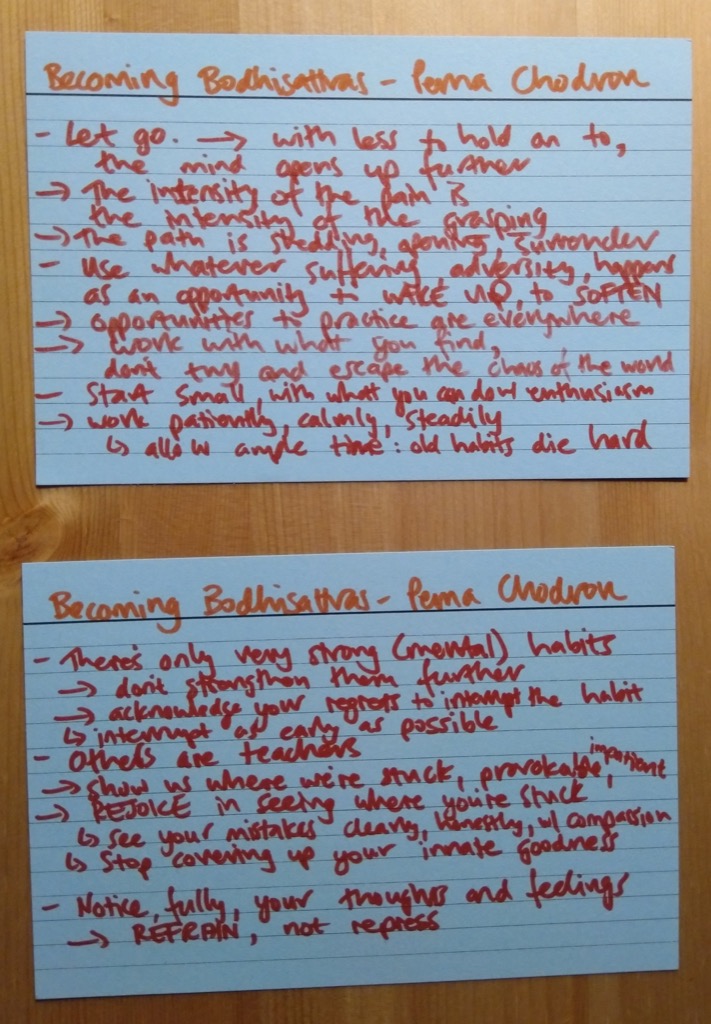 Becoming Bodhisattvas - Pema Chodron
- Let go. → with less to hold on to,
the mind opens up further
→ The intensity of the pain is
the intensity of the grasping
→ The path is shedding, opening, surrender
- Use whatever suffering, adversity, happens
as an opportunity to WAKE UP, to SOFTEN
→ opportunities to practice are everywhere
→ work with what you find,
don't try and escape the chaos of the world
- Start small, with what you can do w/ enthusiasm
→ work patiently, calmly, steadily
↳ allow ample time: old habits die hard
Becoming Bodhisattvas - Pema Chodron
- There's only very strong (mental) habits
→ don't strengthen them further
→ acknowledge your regrets to interrupt the habit
↳ interrupt as early as possible
- Others are teachers
→ show us where we're stuck, provokable, impatient
→ REJOICE in seeing where you're stuck
↳ see your mistakes clearly, honestly, w/ compassion
↳ Stop covering up your innate goodness
- Notice, fully, your thoughts and feelings
→ REFRAIN, not repress